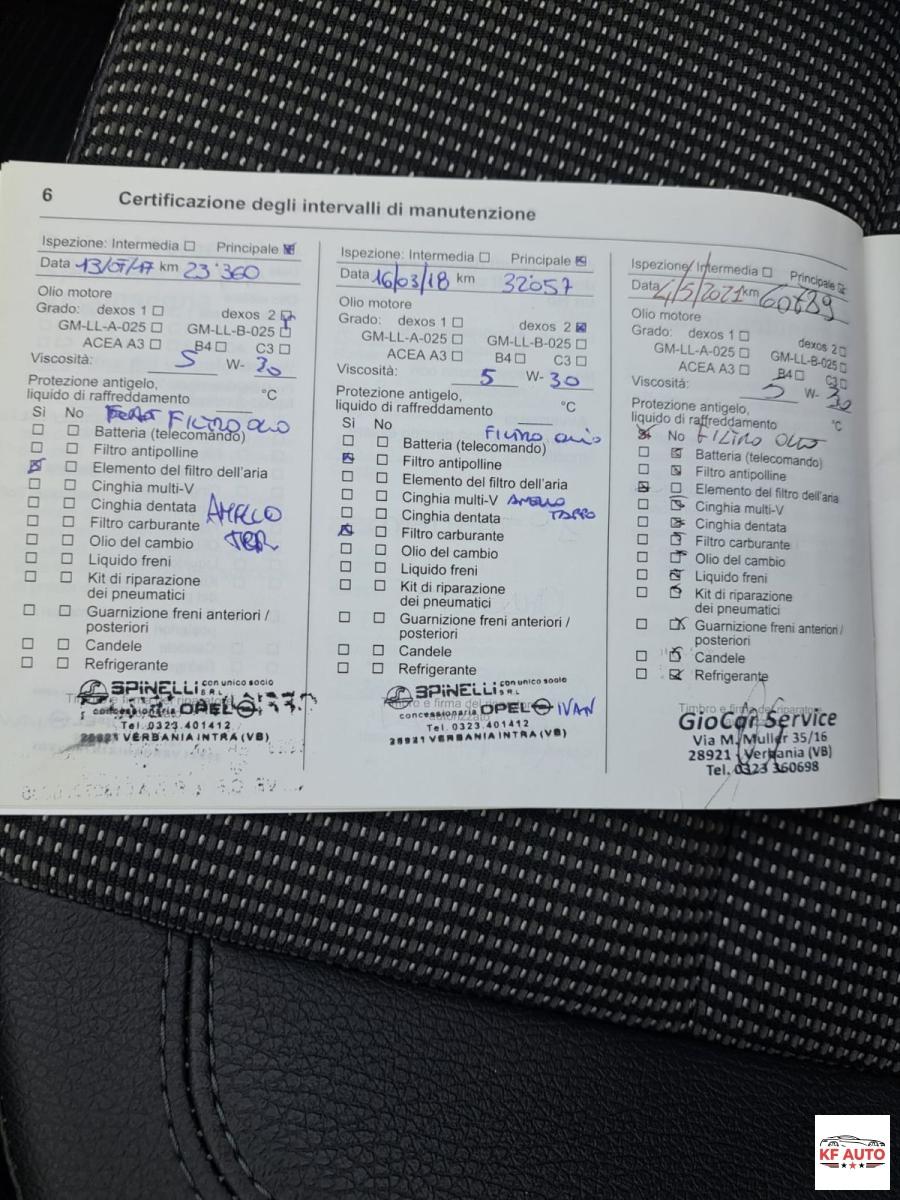 6 Certificazione degli intervalli di manutenzione
Ispezione: Intermedia ☐ Principale ☒
Data 13/07/17 km 23°360
Olio motore
Grado: dexos 1 ☐ dexos 2 ☒
GM-LL-A-025 ☐ GM-LL-B-025 ☐
ACEA A3 ☐ B4 ☐ C3 ☐
Viscosità: 5 W- 30
Protezione antigelo,
liquido di raffreddamento °C
Sì No FILTRO OLIO
☐ ☐ Batteria (telecomando)
☐ ☐ Filtro antipolline
☒ ☐ Elemento del filtro dell'aria
☐ ☐ Cinghia multi-V
☐ ☐ Cinghia dentata ANELLO
☐ ☐ Filtro carburante
☐ ☐ Olio del cambio
☐ ☐ Liquido freni
☐ ☐ Kit di riparazione
dei pneumatici
☐ ☐ Guarnizione freni anteriori /
posteriori
☐ ☐ Candele
☐ ☐ Refrigerante
SPINELLI con unico socio
S.R.L.
concessionaria OPEL
Tel. 0323.401412
28921 VERBANIA INTRA (VB)
Ispezione: Intermedia ☐ Principale ☒
Data 16/03/18 km 32°057
Olio motore
Grado: dexos 1 ☐ dexos 2 ☒
GM-LL-A-025 ☐ GM-LL-B-025 ☐
ACEA A3 ☐ B4 ☐ C3 ☐
Viscosità: 5 W- 30
Protezione antigelo,
liquido di raffreddamento °C
Sì No FILTRO OLIO
☐ ☐ Batteria (telecomando)
☒ ☐ Filtro antipolline
☐ ☐ Elemento del filtro dell'aria
☐ ☐ Cinghia multi-V ANELLO
☐ ☐ Cinghia dentata TAPPO
☒ ☐ Filtro carburante
☐ ☐ Olio del cambio
☐ ☐ Liquido freni
☐ ☐ Kit di riparazione
dei pneumatici
☐ ☐ Guarnizione freni anteriori /
posteriori
☐ ☐ Candele
☐ ☐ Refrigerante
SPINELLI con unico socio
S.R.L.
concessionaria OPEL IVAN
Tel. 0323.401412
28921 VERBANIA INTRA (VB)
Ispezione: Intermedia ☐ Principale ☒
Data 4/5/2021 km 60789
Olio motore
Grado: dexos 1 ☐ dexos 2 ☐
GM-LL-A-025 ☐ GM-LL-B-025 ☐
ACEA A3 ☐ B4 ☐ C3 ☐
Viscosità: 5 W- 30
Protezione antigelo,
liquido di raffreddamento °C
Sì No FILTRO OLIO
☐ ☒ Batteria (telecomando)
☐ ☒ Filtro antipolline
☒ ☐ Elemento del filtro dell'aria
☐ ☒ Cinghia multi-V
☐ ☒ Cinghia dentata
☐ ☒ Filtro carburante
☐ ☒ Olio del cambio
☐ ☒ Liquido freni
☐ ☒ Kit di riparazione
dei pneumatici
☐ ☒ Guarnizione freni anteriori /
posteriori
☐ ☒ Candele
☐ ☒ Refrigerante
Timbro e firma del riparatore
GioCar Service
Via M. Muller 35/16
28921 - Verbania (VB)
Tel. 0323 360698
KF AUTO